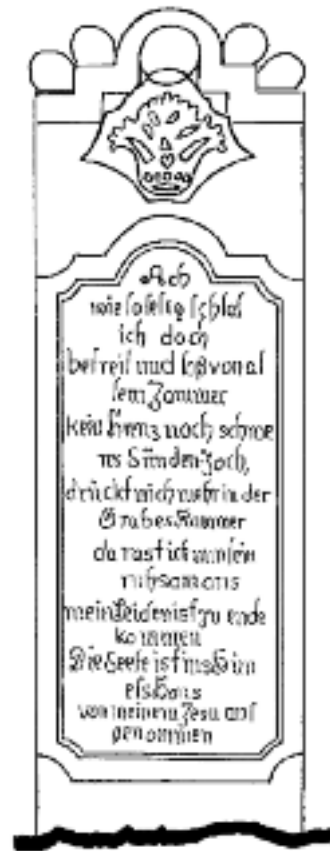 Ach
wie so selig schlaf
ich doch
befreit und loß von al
lem Jammer
kein Kreuz noch schwe
res Sünden-Joch,
drückt mich mehr in der
Grabes Kammer
da rast ich nun sein
ruhsam aus
mein Leiden ist zu ende
kommen
Die Seele ist ins Him
els Haus
von meinem Jesu auf
genommen